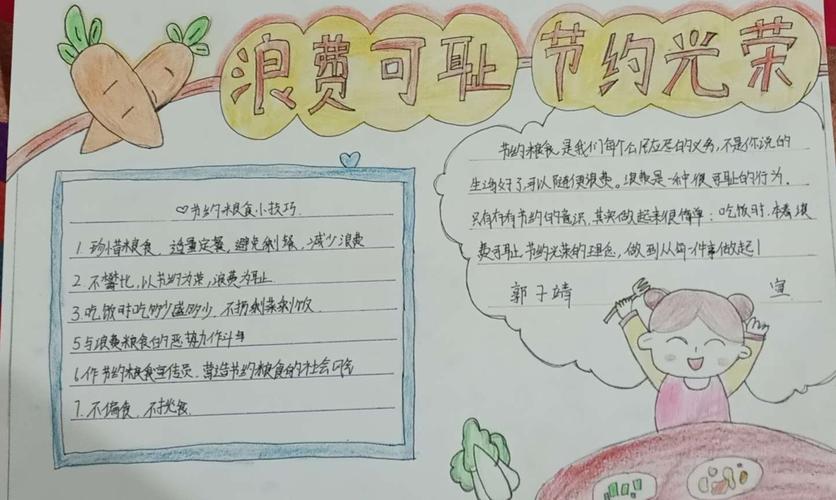 浪费可耻 节约光荣
♡节约粮食小技巧.
1 珍惜粮食、适量定餐,避免剩餐,减少浪费
2.不攀比,以节约为荣,浪费为耻
3.吃饭时吃多少盛多少,不扔剩菜剩饭
5与浪费粮食的恶势力作斗争
6.作节约粮食宣传员、营造节约粮食的社会
7.不偏食、不挑食
节约粮食是我们每个公民应尽的义务,不是你说的
生活好了,可以随便浪费。浪费是一种很可耻的行为.
只有有节约的意识,其实做起来很简单:吃饭时,本着浪
费可耻,节约光荣的理念,做到从每一件事做起!
郭子靖 宣